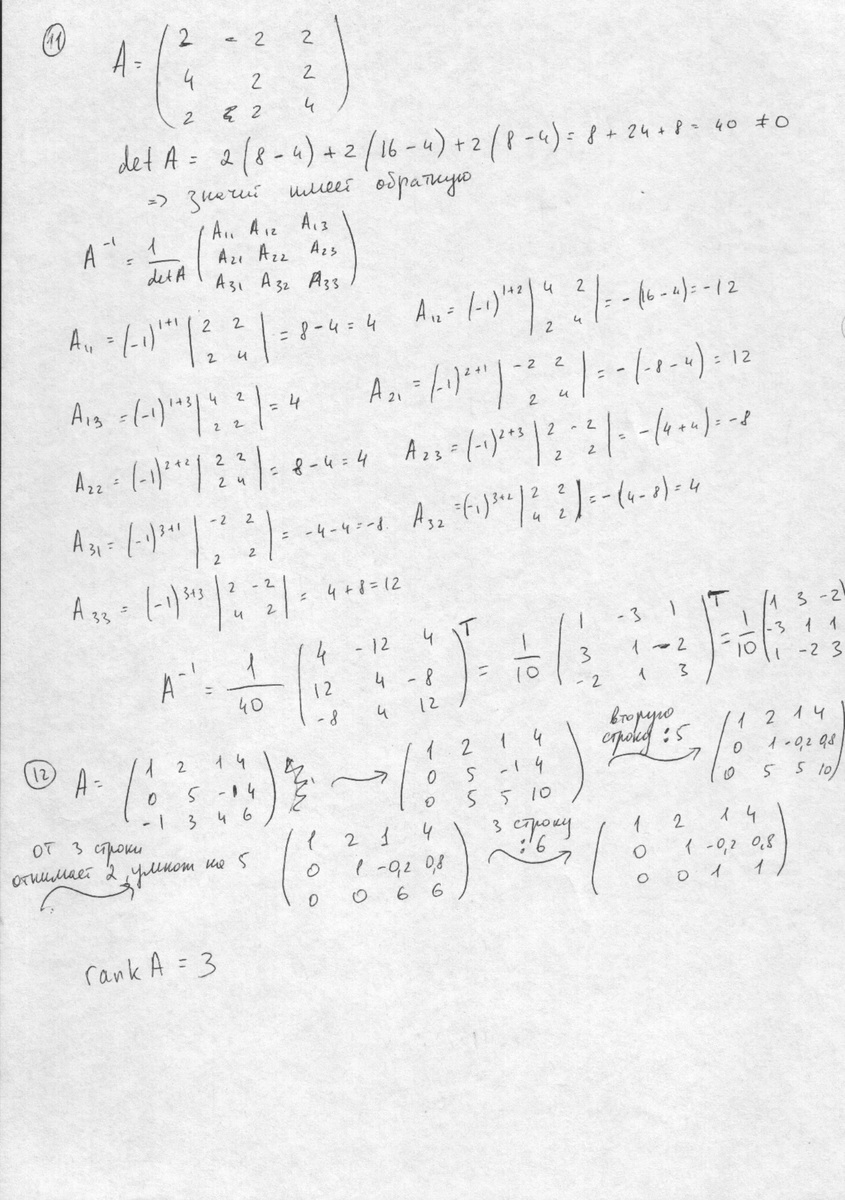 11
A = ( 2 - 2 2
4 2 2
2 2 4 )
det A = 2(8-4)+2(16-4)+2(8-4) = 8+24+8 = 40 ≠ 0
=> значит имеет обратную
A⁻¹ = 1/detA ( A₁₁ A₁₂ A₁₃
A₂₁ A₂₂ A₂₃
A₃₁ A₃₂ A₃₃ )
A₁₁ = (-1)¹⁺¹ | 2 2 ; 2 4 | = 8-4 = 4 A₁₂ = (-1)¹⁺² | 4 2 ; 2 4 | = -(16-4) = -12
A₁₃ = (-1)¹⁺³ | 4 2 ; 2 2 | = 4 A₂₁ = (-1)²⁺¹ | -2 2 ; 2 4 | = -(-8-4) = 12
A₂₂ = (-1)²⁺² | 2 2 ; 2 4 | = 8-4 = 4 A₂₃ = (-1)²⁺³ | 2 -2 ; 2 2 | = -(4+4) = -8
A₃₁ = (-1)³⁺¹ | -2 2 ; 2 2 | = -4-4 = -8 A₃₂ = (-1)³⁺² | 2 2 ; 4 2 | = -(4-8) = 4
A₃₃ = (-1)³⁺³ | 2 -2 ; 4 2 | = 4+8 = 12
A⁻¹ = 1/40 ( 4 -12 4 ; 12 4 -8 ; -8 4 12 )ᵀ = 1/10 ( 1 -3 1 ; 3 1 -2 ; -2 1 3 )ᵀ = 1/10 ( 1 3 -2 ; -3 1 1 ; 1 -2 3
12
A = ( 1 2 1 4 ; 0 5 -1 4 ; -1 3 4 6 ) → ( 1 2 1 4 ; 0 5 -1 4 ; 0 5 5 10 )
вторую
строку : 5
→ ( 1 2 1 4 ; 0 1 -0,2 0,8 ; 0 5 5 10 )
от 3 строки
отнимает 2, умнож на 5
→ ( 1 2 1 4 ; 0 1 -0,2 0,8 ; 0 0 6 6 )
3 строку
: 6
→ ( 1 2 1 4 ; 0 1 -0,2 0,8 ; 0 0 1 1 )
rank A = 3